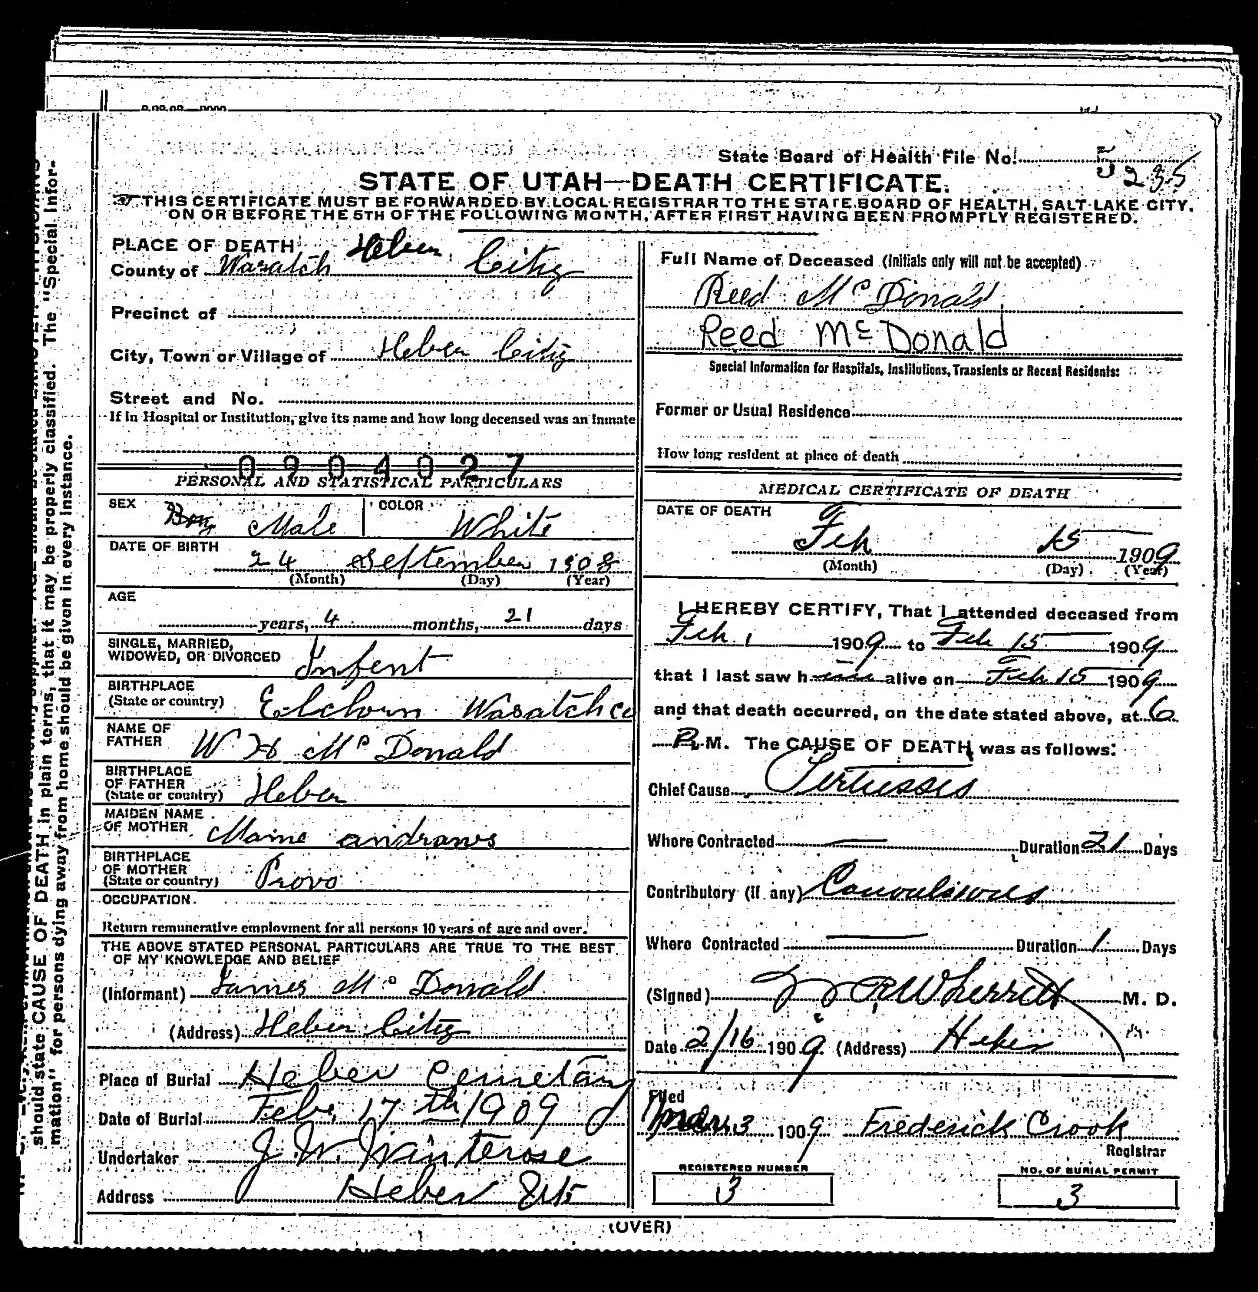 State Board of Health File No. 5235
STATE OF UTAH—DEATH CERTIFICATE.
THIS CERTIFICATE MUST BE FORWARDED BY LOCAL REGISTRAR TO THE STATE BOARD OF HEALTH, SALT LAKE CITY,
ON OR BEFORE THE 5TH OF THE FOLLOWING MONTH, AFTER FIRST HAVING BEEN PROMPTLY REGISTERED.
PLACE OF DEATH
County of Wasatch Heber City
Precinct of
City, Town or Village of Heber City
Street and No.
If in Hospital or Institution, give its name and how long deceased was an Inmate
0904027
PERSONAL AND STATISTICAL PARTICULARS
SEX Boy Male COLOR White
DATE OF BIRTH 24 September 1908
(Month) (Day) (Year)
AGE
years, 4 months, 21 days
SINGLE, MARRIED,
WIDOWED, OR DIVORCED Infent
BIRTHPLACE
(State or country) Elchorn Wasatch co
NAME OF
FATHER W H Mc Donald
BIRTHPLACE
OF FATHER
(State or country) Heber
MAIDEN NAME
OF MOTHER Mame andraws
BIRTHPLACE
OF MOTHER
(State or country) Provo
OCCUPATION
Return remunerative employment for all persons 10 years of age and over.
THE ABOVE STATED PERSONAL PARTICULARS ARE TRUE TO THE BEST
OF MY KNOWLEDGE AND BELIEF
(Informant) James Mc Donald
(Address) Heber City
Place of Burial Heber Cemetary
Date of Burial Feb. 17th 1909
Undertaker J. W. Winterose
Address Heber Ut
Full Name of Deceased (Initials only will not be accepted)
Reed Mc Donald
Reed McDonald
Special Information for Hospitals, Institutions, Transients or Recent Residents:
Former or Usual Residence
How long resident at place of death
MEDICAL CERTIFICATE OF DEATH
DATE OF DEATH
Feb 15 1909
(Month) (Day) (Year)
I HEREBY CERTIFY, That I attended deceased from
Feb 1 1909 to Feb 15 1909
that I last saw him alive on Feb 15 1909
and that death occurred, on the date stated above, at 6
P. M. The CAUSE OF DEATH was as follows:
Chief Cause Pertussis
Where Contracted — Duration 21 Days
Contributory (if any) Convulsions
Where Contracted — Duration 1 Days
(Signed) R Wherritt M. D.
Date 2/16 1909 (Address) Heber
Filed
Mar 3 1909 Frederick Crook
Registrar
REGISTERED NUMBER
3
NO. OF BURIAL PERMIT
3
(OVER)
should state CAUSE OF DEATH in plain terms, that it may be properly classified. The "Special Infor-
mation" for persons dying away from home should be given in every instance.